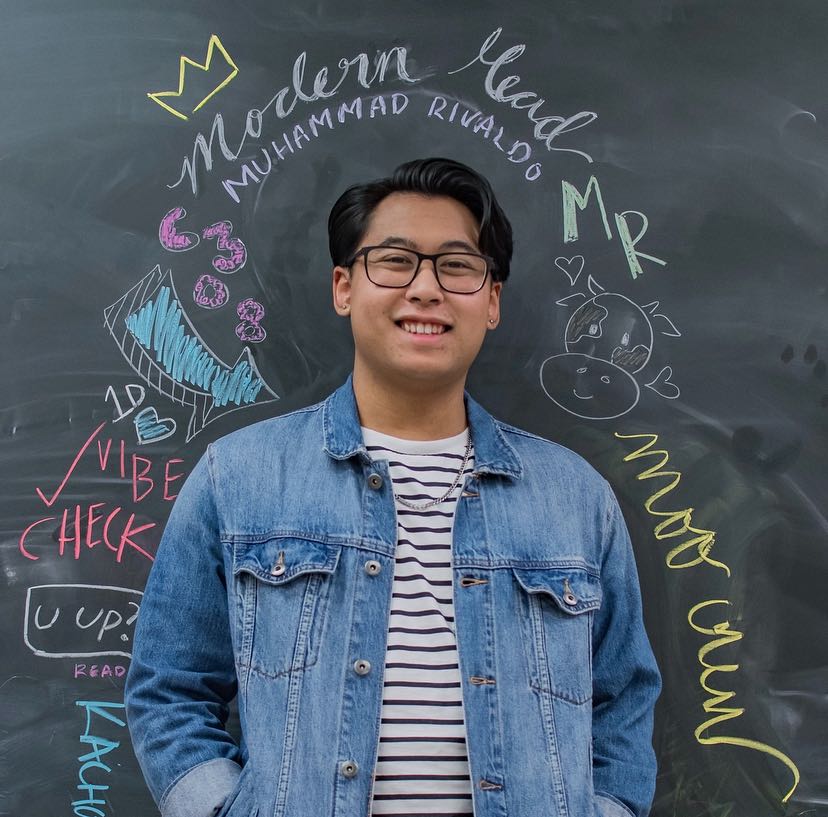 Modern Lead
MUHAMMAD RIVALDO
MR
1D
VIBE
CHECK
U UP?
READ
moo crew